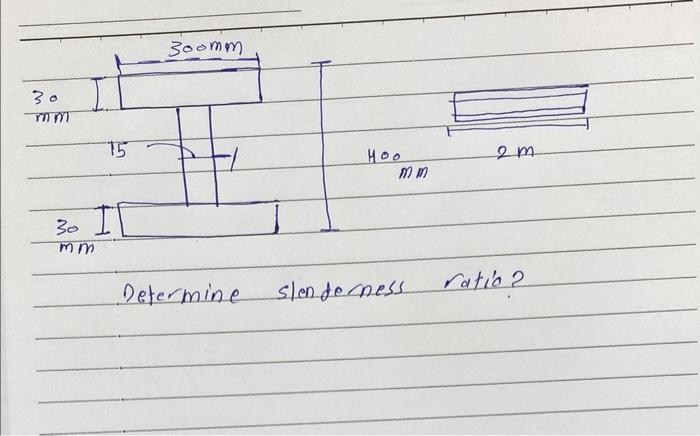 300mm
30
mm
15
400
mm
2m
30
mm
Determine slenderness ratio?